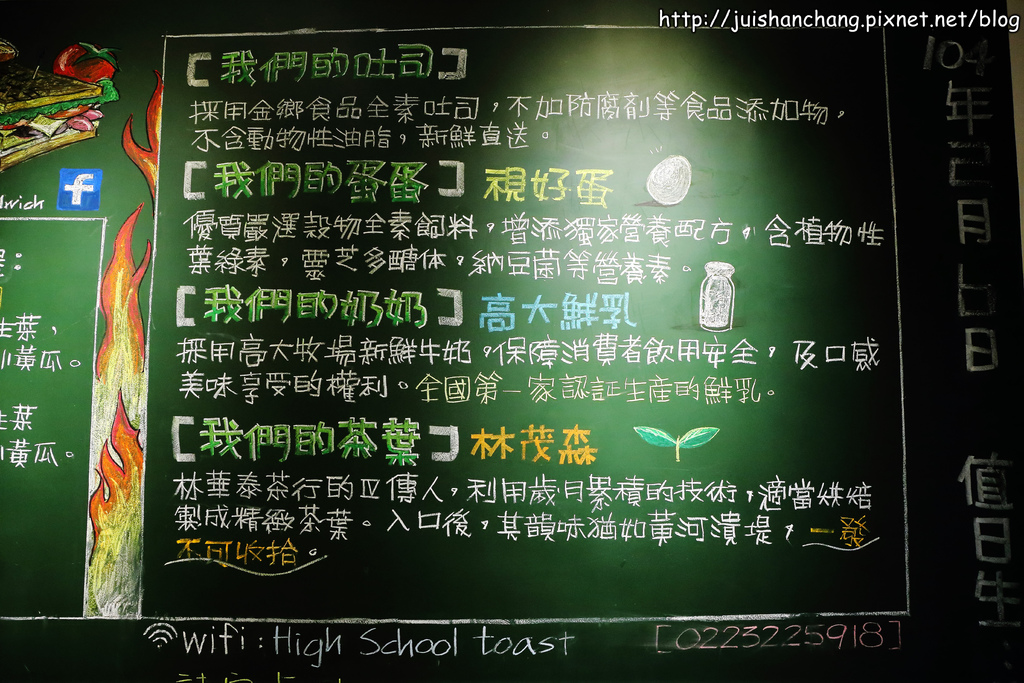 http://juishanchang.pixnet.net/blog
【我們的吐司】
採用金鄉食品全素吐司，不加防腐劑等食品添加物，
不含動物性油脂，新鮮直送。
【我們的蛋蛋】視好蛋
優質嚴選穀物全素飼料，增添獨家營養配方，含植物性
葉綠素，靈芝多醣体，納豆菌等營養素。
【我們的奶奶】高大鮮乳
採用高大牧場新鮮牛奶，保障消費者飲用安全，及口感
美味享受的權利。全國第一家認証生產的鮮乳。
【我們的茶葉】林茂森
林華泰茶行的四傳人，利用歲月累積的技術，適當烘焙
製成精緻茶葉。入口後，其韻味猶如黃河潰堤，一發
不可收拾。
wifi:High School toast
[0223225918]
104年2月6日
值日生:
dwich
f
生葉，
小黃瓜。
生葉
小黃瓜。